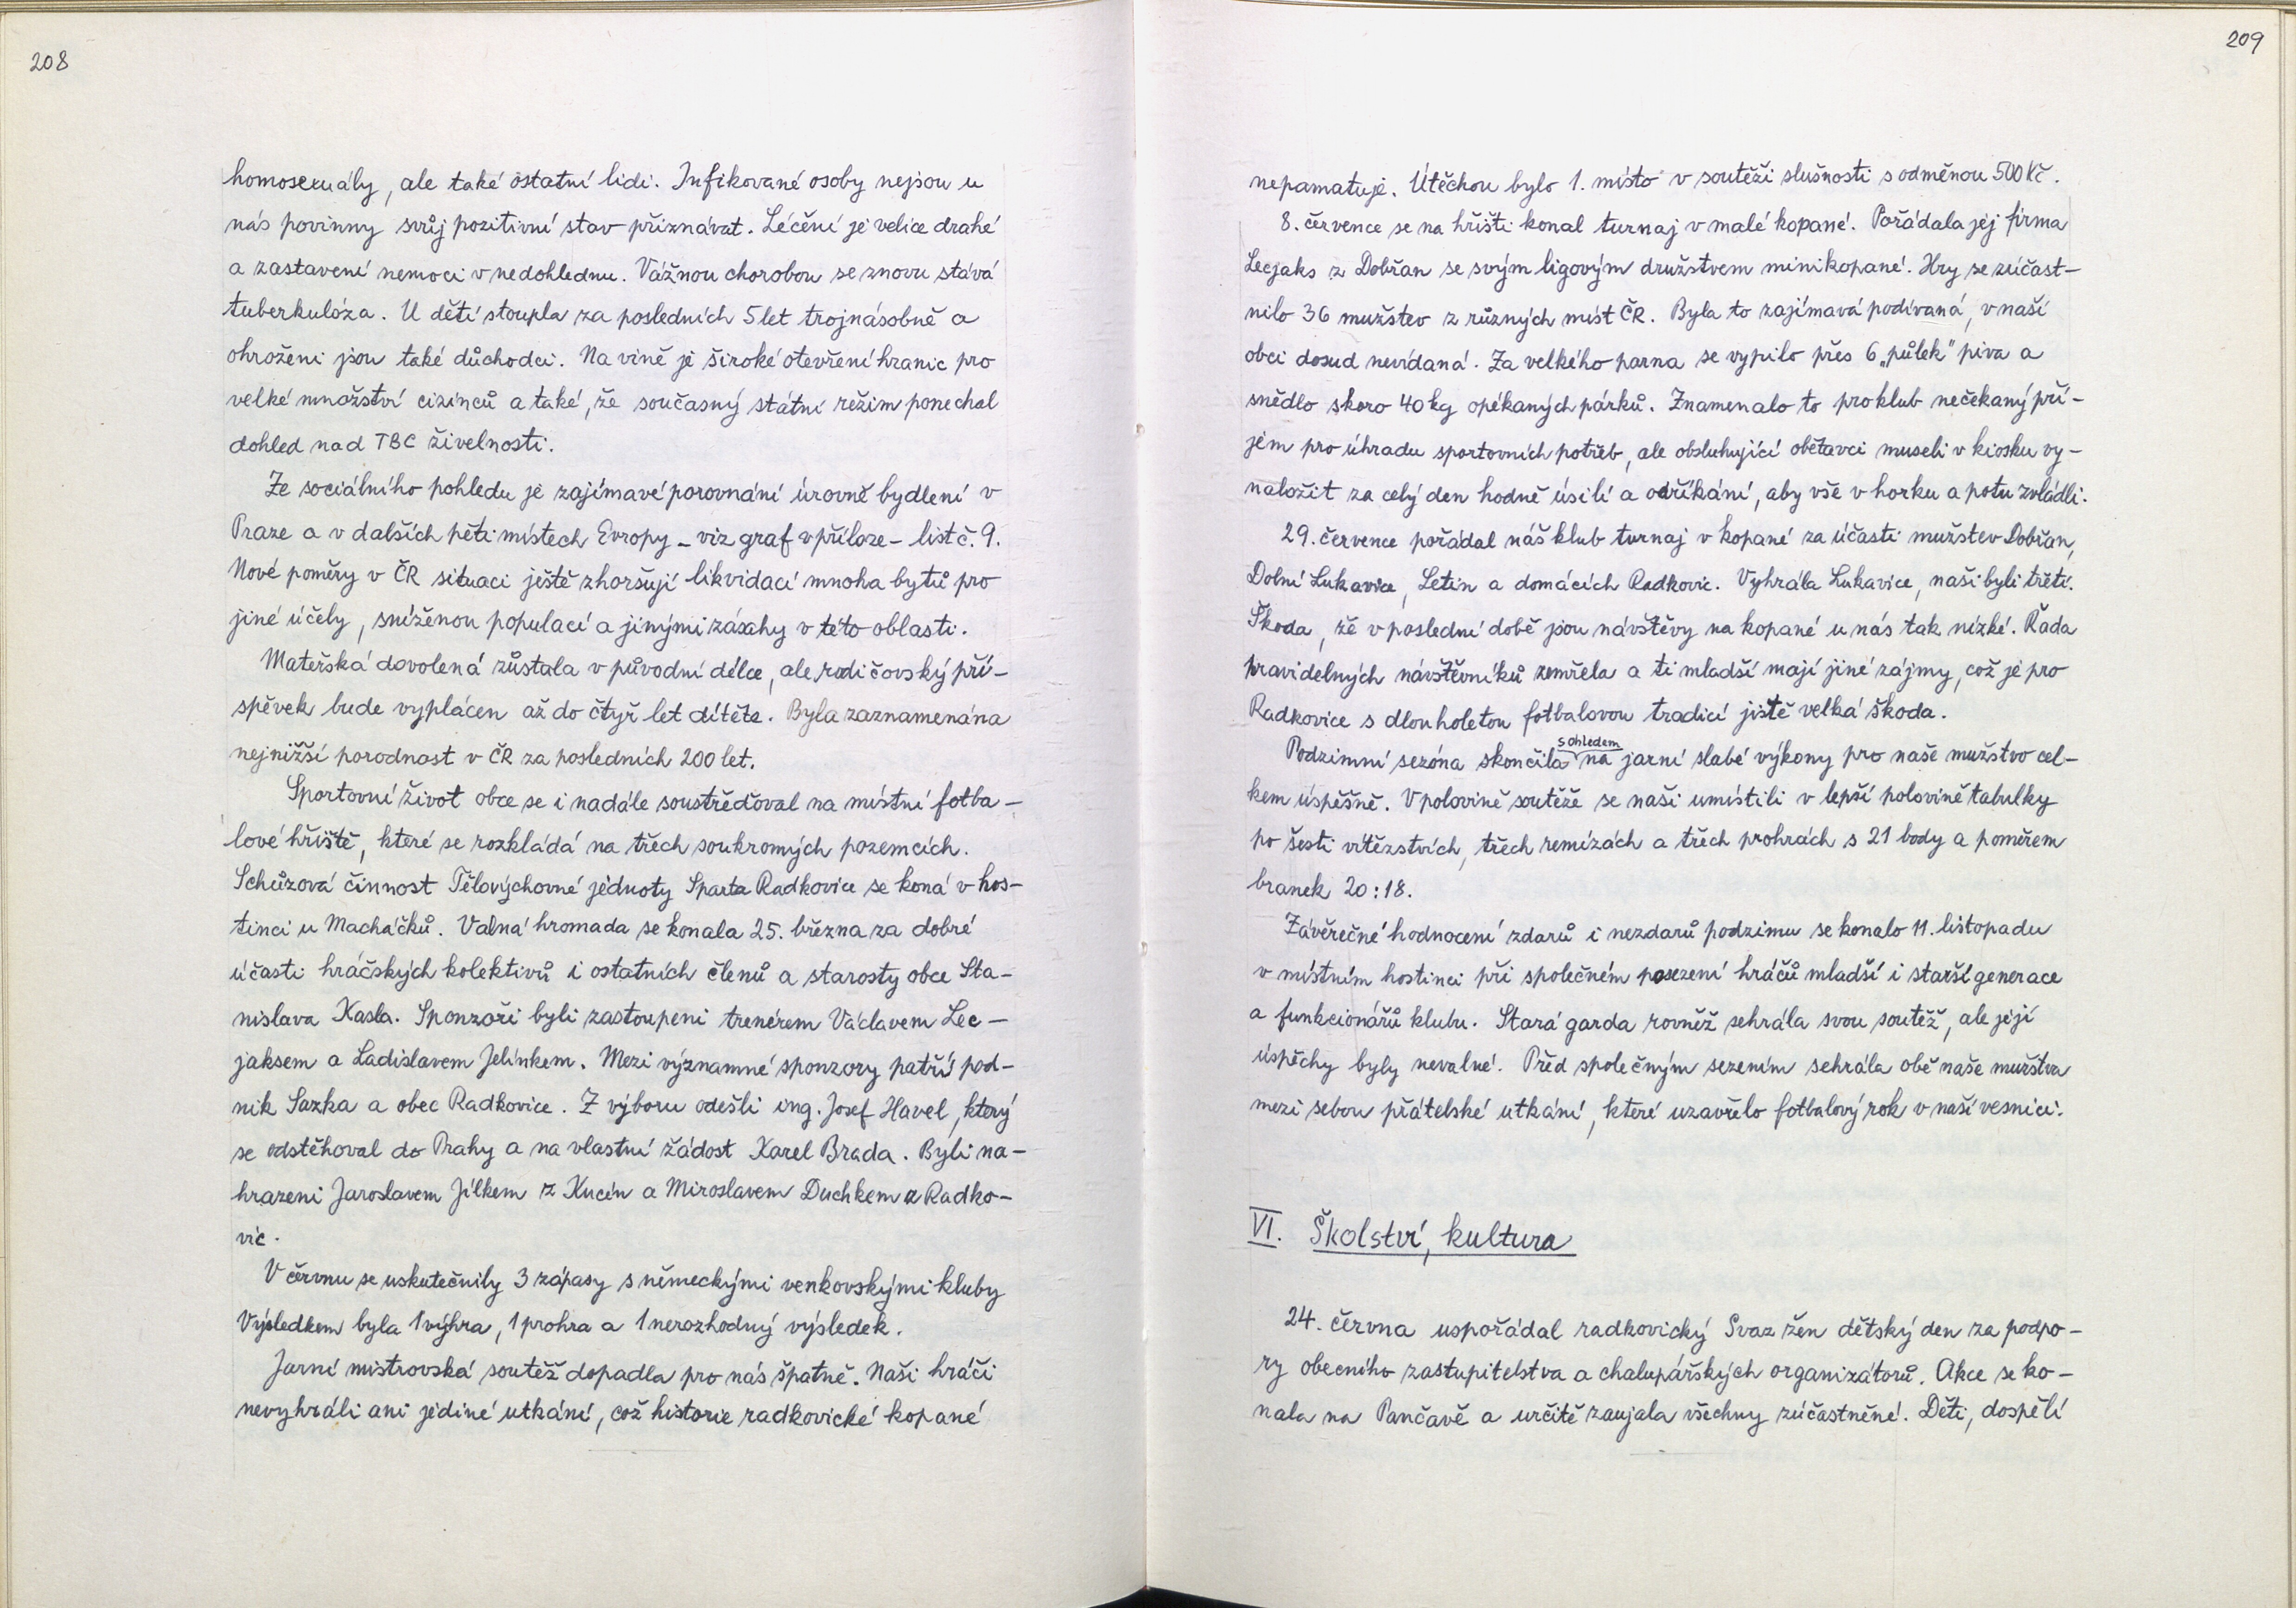 208
homosexuály, ale také ostatní lidi. Infikované osoby nejsou u
nás povinny svůj pozitivní stav přiznávat. Léčení je velice drahé
a zastavení nemoci v nedohlednu. Vážnou chorobou se znovu stává
tuberkulóza. U dětí stoupla za posledních 5 let trojnásobně a
ohroženi jsou také důchodci. Na vině je široké otevření hranic pro
velké množství cizinců a také, že současný státní režim ponechal
dohled nad TBC živelnosti.
Ze sociálního pohledu je zajímavé porovnání úrovně bydlení v
Praze a v dalších pěti místech Evropy - viz graf v příloze - list č. 9.
Nové poměry v ČR situaci ještě zhoršují likvidací mnoha bytů pro
jiné účely, sníženou populací a jinými zásahy v této oblasti.
Mateřská dovolená zůstala v původní délce, ale rodičovský pří-
spěvek bude vyplácen až do čtyř let dítěte. Byla zaznamenána
nejnižší porodnost v ČR za posledních 200 let.
Sportovní život obce se i nadále soustřeďoval na místní fotba-
lové hřiště, které se rozkládá na třech soukromých pozemcích.
Schůzová činnost Tělovýchovné jednoty Sparta Radkovice se koná v hos-
tinci u Macháčků. Valná hromada se konala 25. března za dobré
účasti hráčských kolektivů i ostatních členů a starosty obce Sta-
nislava Kasla. Sponzoři byli zastoupeni trenérem Václavem Lec-
jaksem a Ladislavem Jelínkem. Mezi významné sponzory patří pod-
nik Sazka a obec Radkovice. Z výboru odešli ing. Josef Havel, který
se odstěhoval do Prahy a na vlastní žádost Karel Brada. Byli na-
hrazeni Jaroslavem Jílkem z Kucín a Miroslavem Duchkem z Radko-
vic.
V červnu se uskutečnily 3 zápasy s německými venkovskými kluby
Výsledkem byla 1 výhra, 1 prohra a 1 nerozhodný výsledek.
Jarní mistrovská soutěž dopadla pro nás špatně. Naši hráči
nevyhráli ani jediné utkání, což historie radkovické kopané
209
nepamatuje. Útěchou bylo 1. místo v soutěži slušnosti s odměnou 500 Kč.
8. července se na hřišti konal turnaj v malé kopané. Pořádala jej firma
Lecjaks z Dobřan se svým ligovým družstvem minikopané. Hry se zúčast-
nilo 36 mužstev z různých míst ČR. Byla to zajímavá podívaná, v naší
obci dosud nevídaná. Za velkého parna se vypilo přes 6 „půlek" piva a
snědlo skoro 40 kg opékaných párků. Znamenalo to pro klub nečekaný pří-
jem pro úhradu sportovních potřeb, ale obsluhující obětavci museli v kiosku vy-
naložit za celý den hodně úsilí a odříkání, aby vše v horku a potu zvládli.
29. července pořádal náš klub turnaj v kopané za účasti mužstev Dobřan,
Dolní Lukavice, Letin a domácích Radkovic. Vyhrála Lukavice, naši byli třetí.
Škoda, že v poslední době jsou návštěvy na kopané u nás tak nízké. Řada
pravidelných návštěvníků zemřela a ti mladší mají jiné zájmy, což je pro
Radkovice s dlouholetou fotbalovou tradicí jistě velká škoda.
Podzimní sezóna skončila s ohledem na jarní slabé výkony pro naše mužstvo cel-
kem úspěšně. V polovině soutěže se naši umístili v lepší polovině tabulky
po šesti vítězstvích, třech remízách a třech prohrách s 21 body a poměrem
branek 20:18.
Závěrečné hodnocení zdarů i nezdarů podzimu se konalo 11. listopadu
v místním hostinci při společném posezení hráčů mladší i starší generace
a funkcionářů klubu. Stará garda rovněž sehrála svou soutěž, ale její
úspěchy byly nevalné. Před společným sezením sehrála obě naše mužstva
mezi sebou přátelské utkání, které uzavřelo fotbalový rok v naší vesnici.
VI. Školství, kultura
24. června uspořádal radkovický Svaz žen dětský den za podpo-
ry obecního zastupitelstva a chalupářských organizátorů. Akce se ko-
nala na Pančavě a určitě zaujala všechny zúčastněné. Děti, dospělí